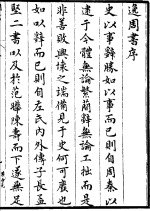 逸周書序
史以事辭勝如以事而已則自周秦以
迄于今體無論繁簡辭無論工拙而是
非善敗興壞之端備見于史何可廢也
如以辭而已則自左氏內外傳子長孟
堅二書以及於范曄陳壽而下遂無足